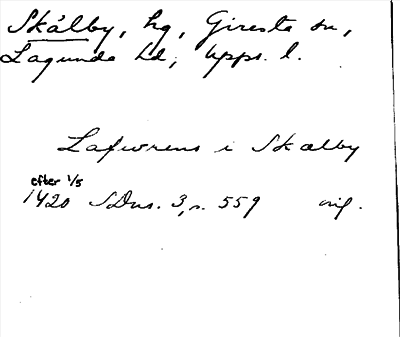 Skálby, hg, Giresta sn,
Lagunda hd, Upps. l.
Lafwrens i Skalby
efter 1/5
1420 SDns. 3, s. 559 orig.